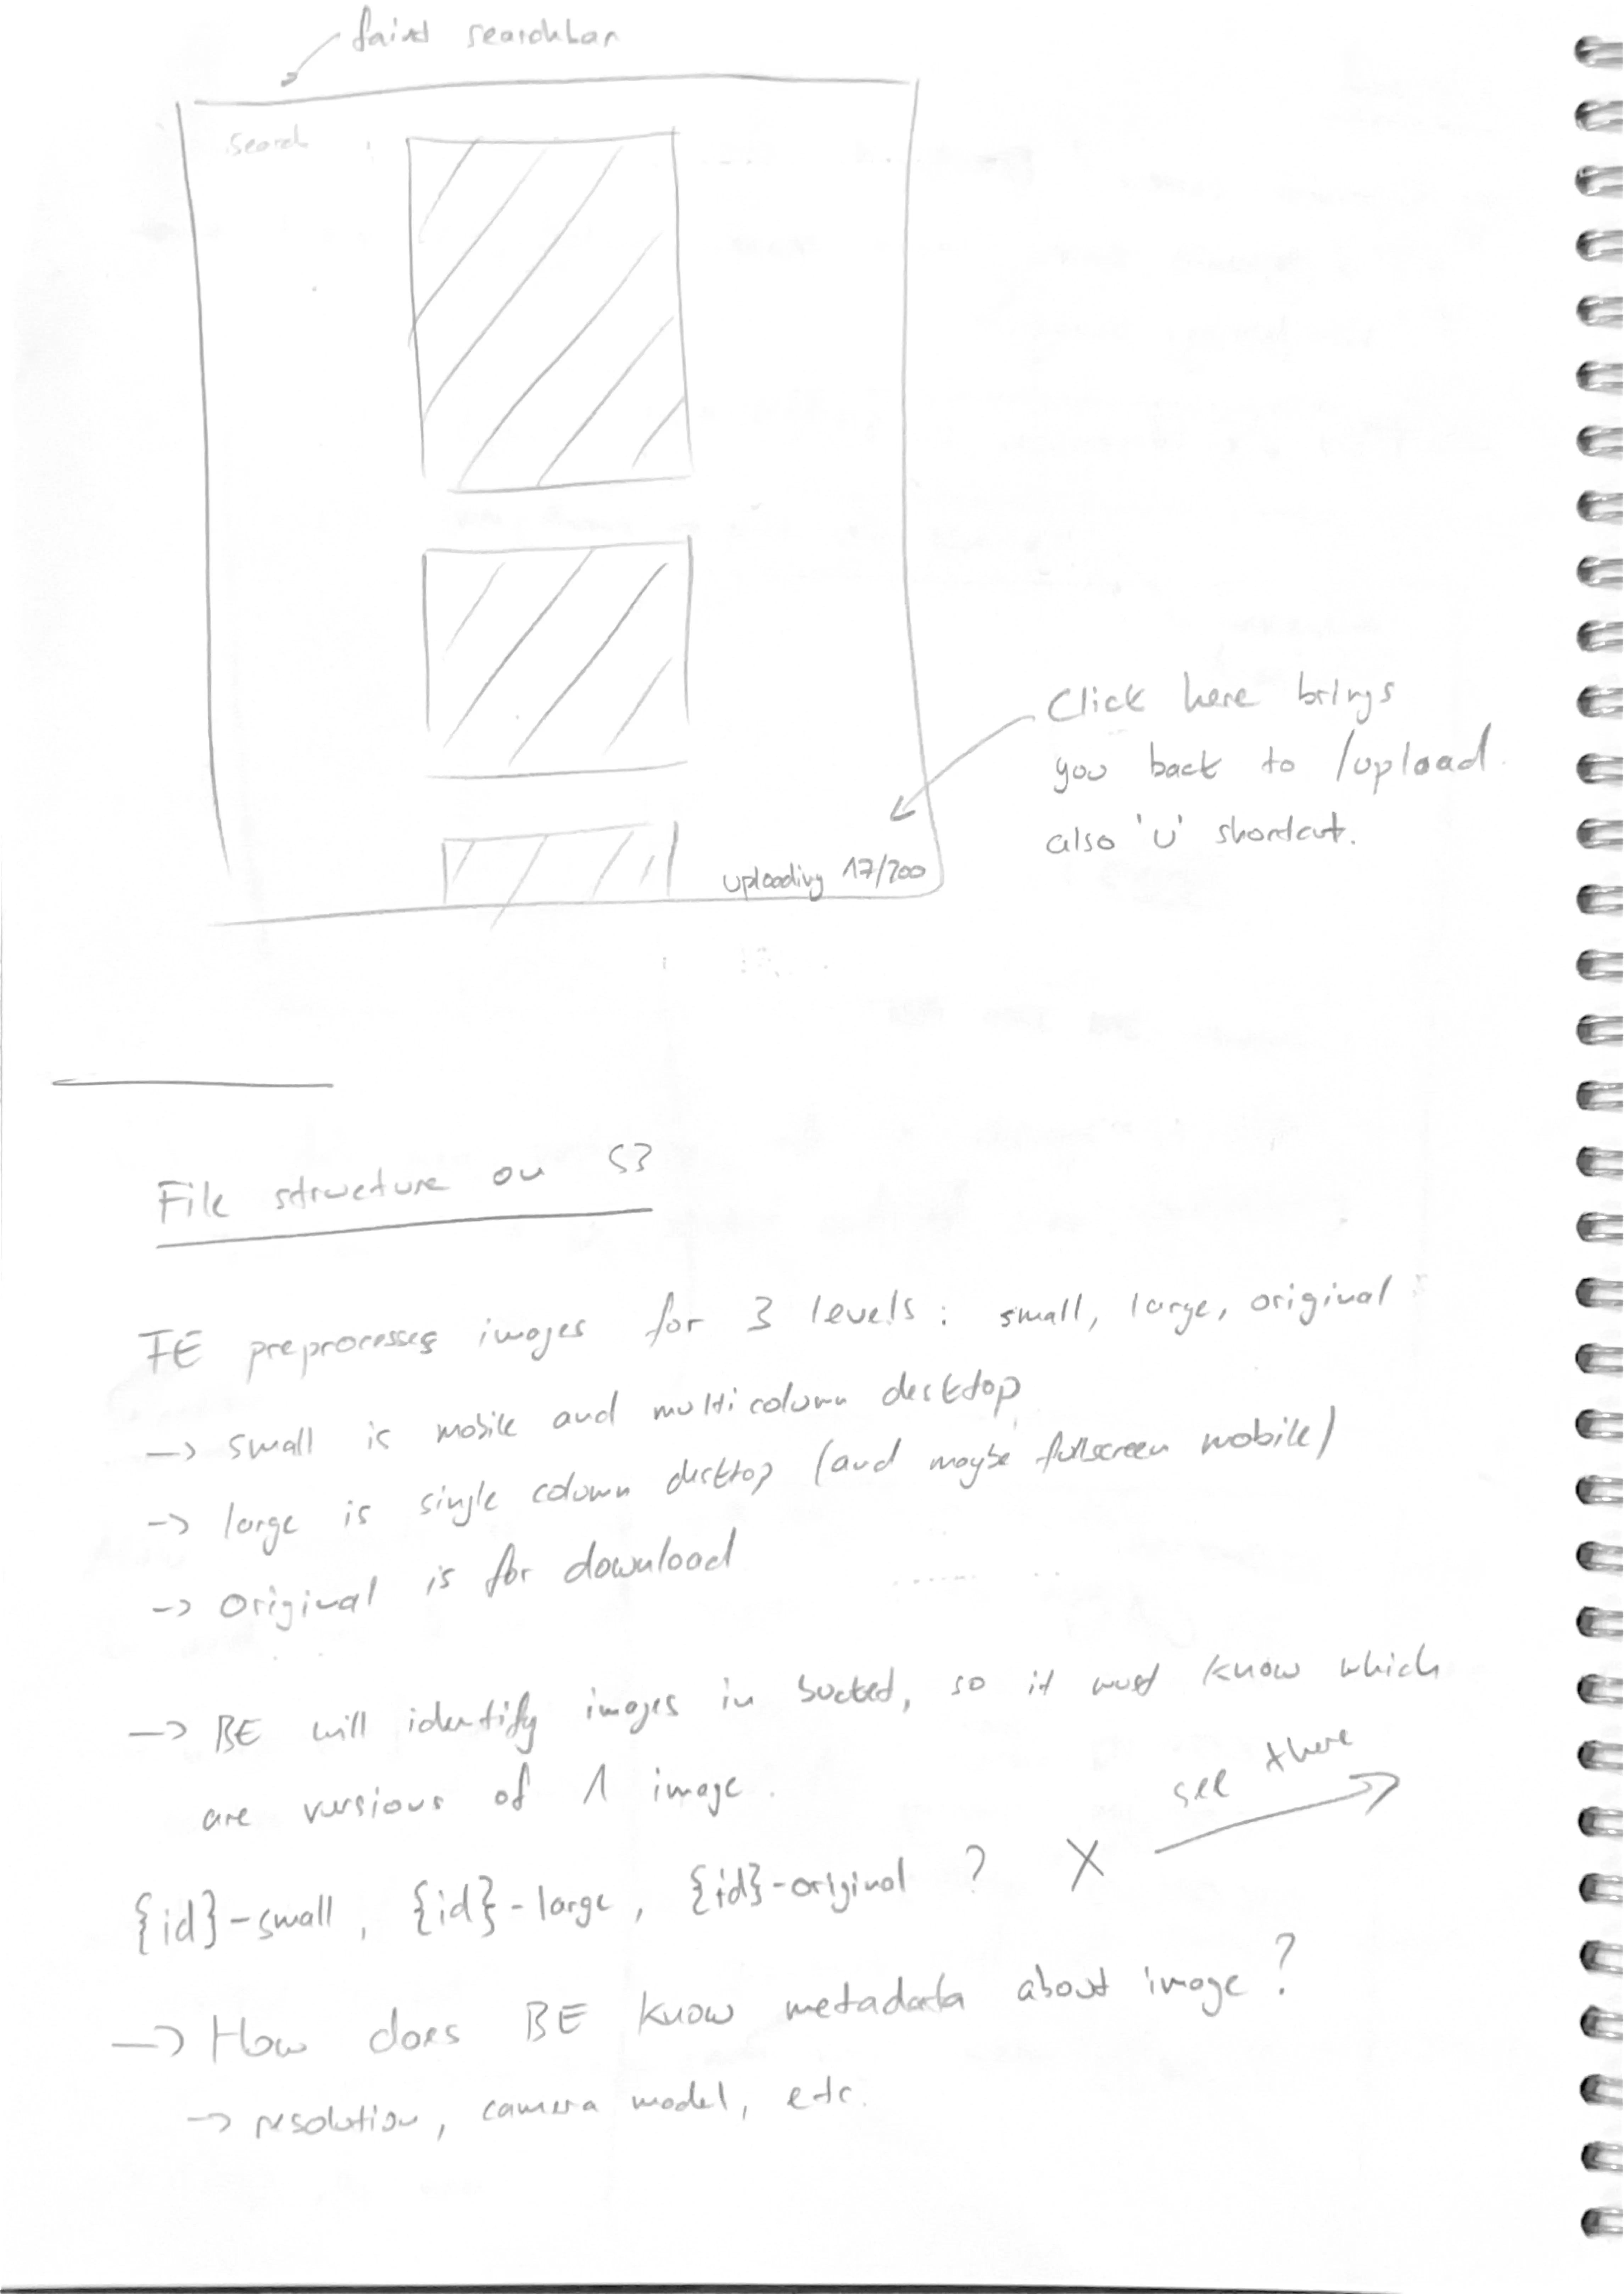 faint searchbar
search
Click here brings
you back to /upload
also 'U' shortcut.
uploading 17/200
File structure on S3
FE preprocesses images for 3 levels: small, large, original
-> small is mobile and multicolumn desktop
-> large is single column desktop (and maybe fullscreen mobile)
-> original is for download
-> BE will identify images in bucket, so it must know which
are versions of 1 image.
see there
{id}-small, {id}-large, {id}-original ? X
-> How does BE know metadata about image?
-> resolution, camera model, etc.